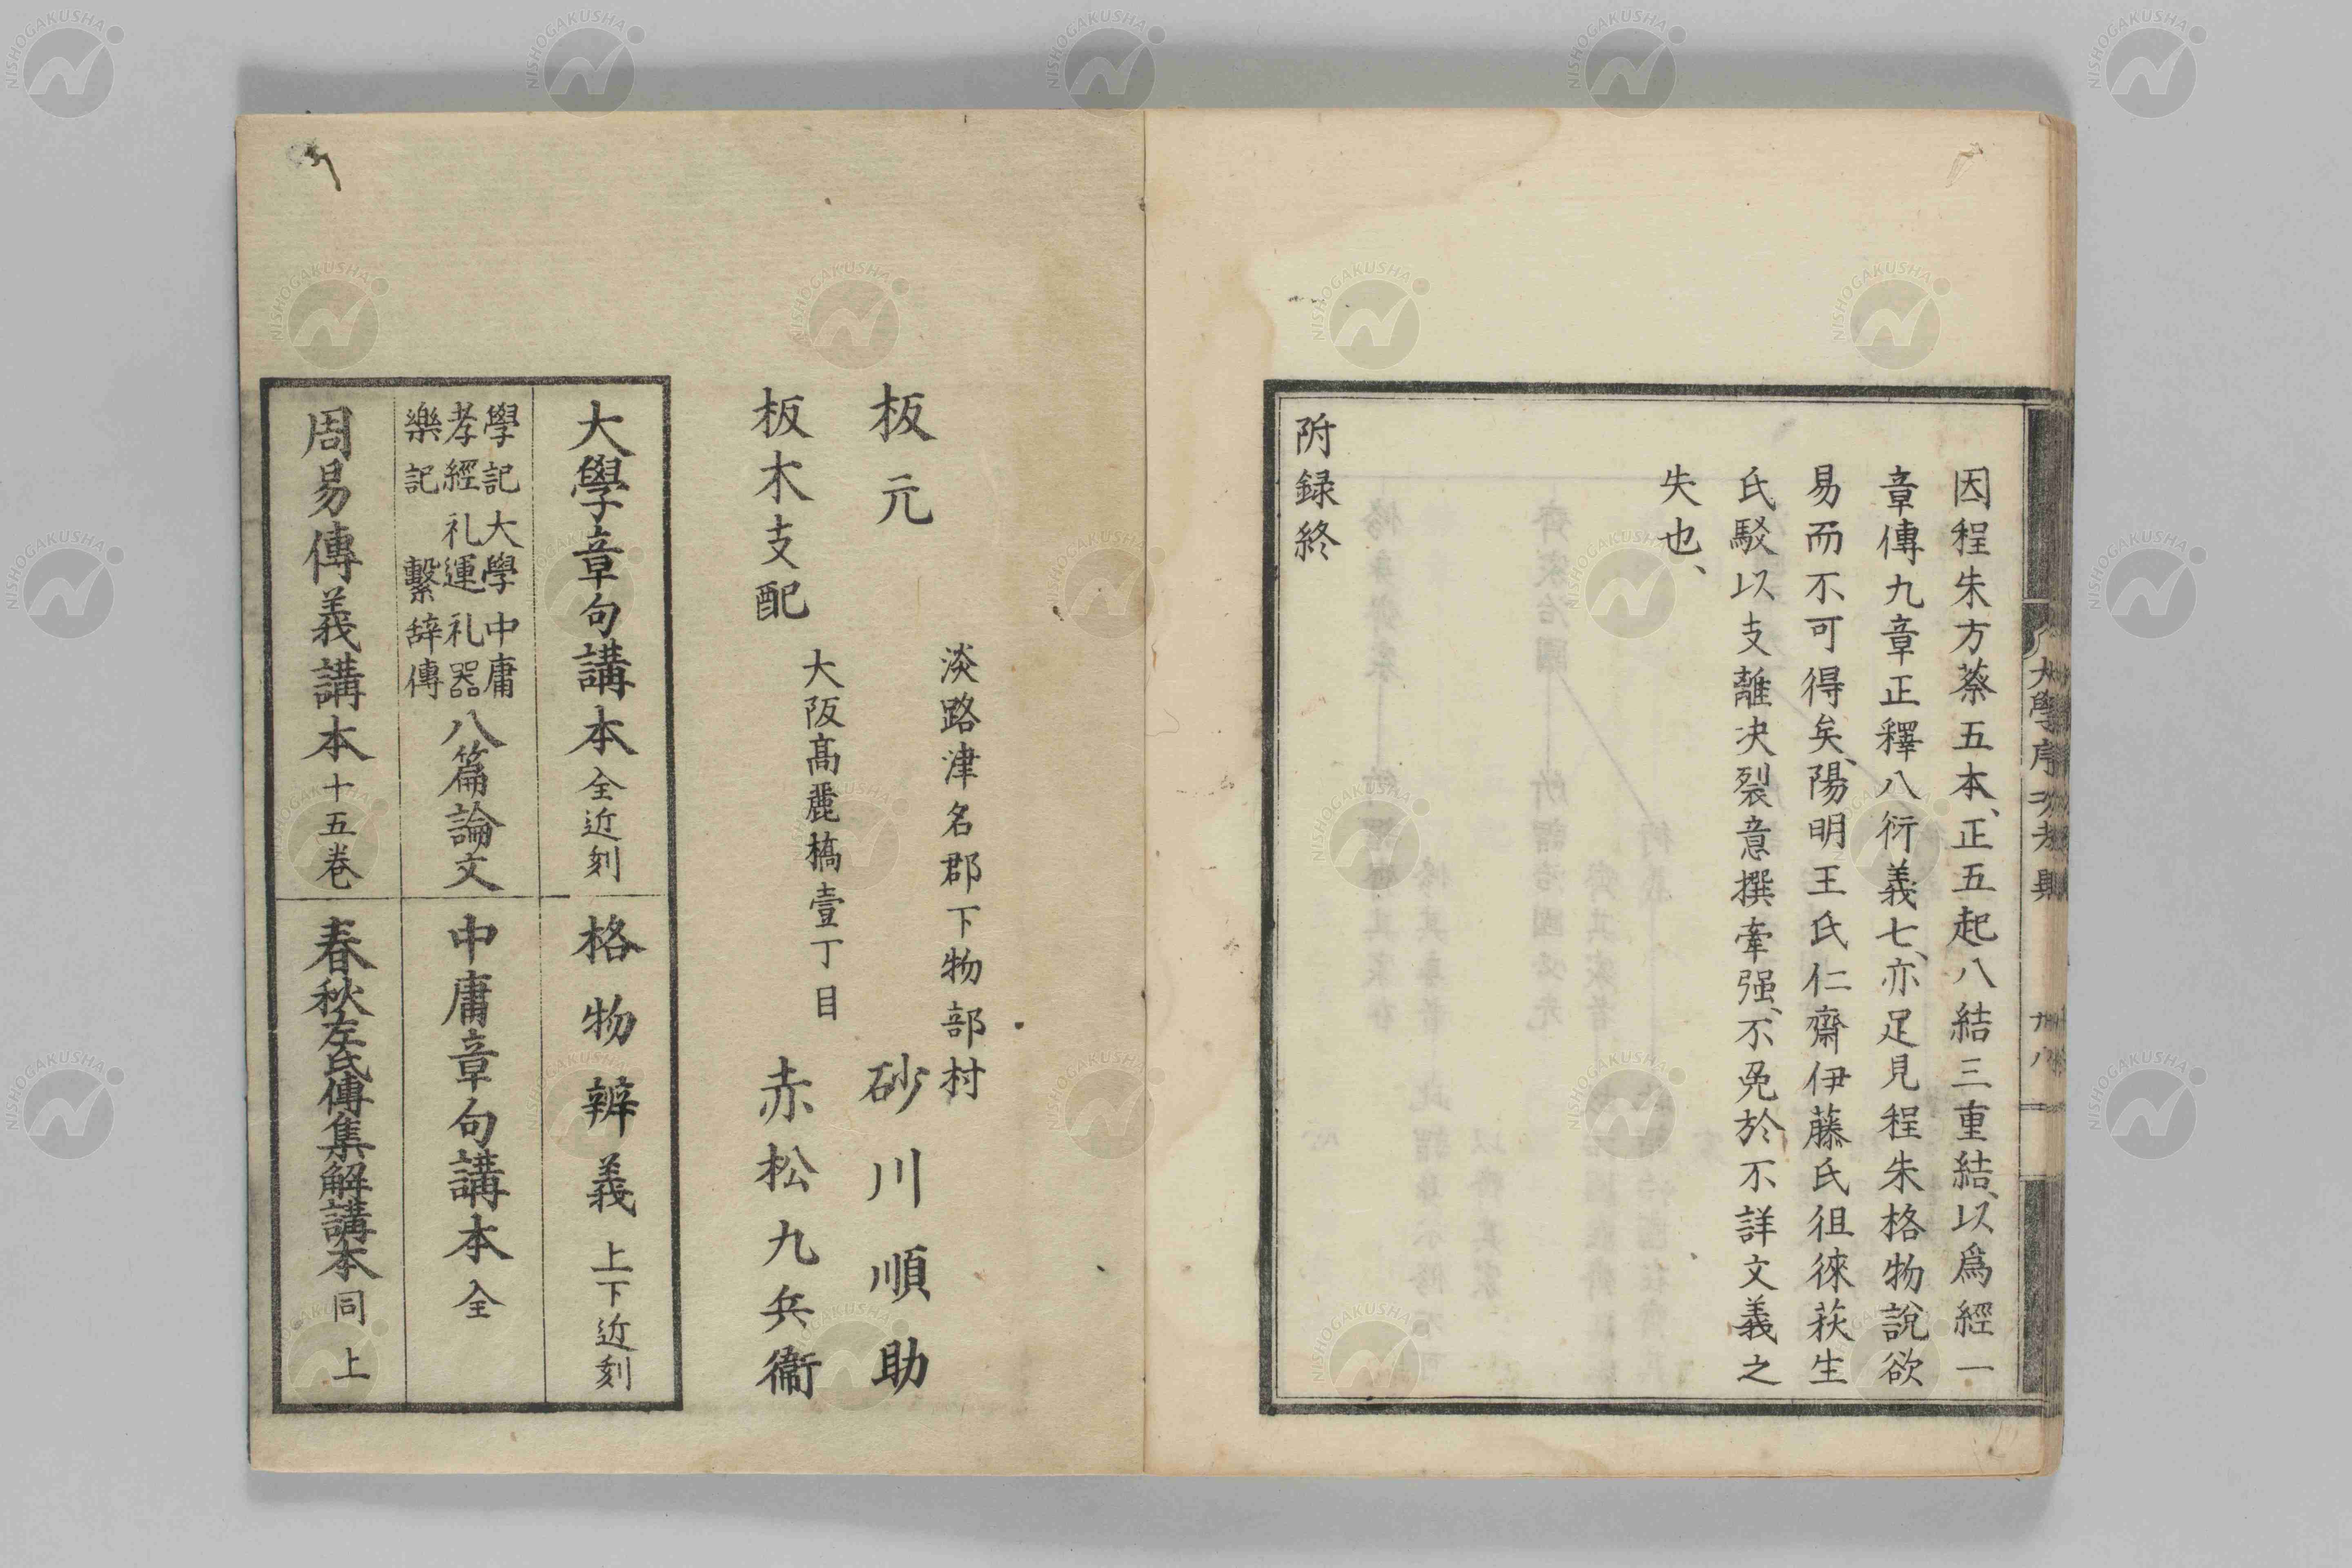 因程朱方蔡五本、正五起八結三重結、以爲經一
章傳九章正釋八衍義七、亦足見程朱格物說欲
易而不可得矣、陽明王氏仁齋伊藤氏徂徠荻生
氏駁以支離決裂意撰牽强、不免於不詳文義之
失也、
附録終
淡路津名郡下物部村
板元 砂川順助
大阪髙麗橋壹丁目
板木支配 赤松九兵衞
大學章句講本 全近刻
格物辨義 上下近刻
學記 大學 中庸
孝經 礼運 礼器
樂記 繫辞傳
八篇論文
中庸章句講本 全
周易傳義講本 十五巻
春秋左氏傳集解講本 同上
NISHOGAKUSHA